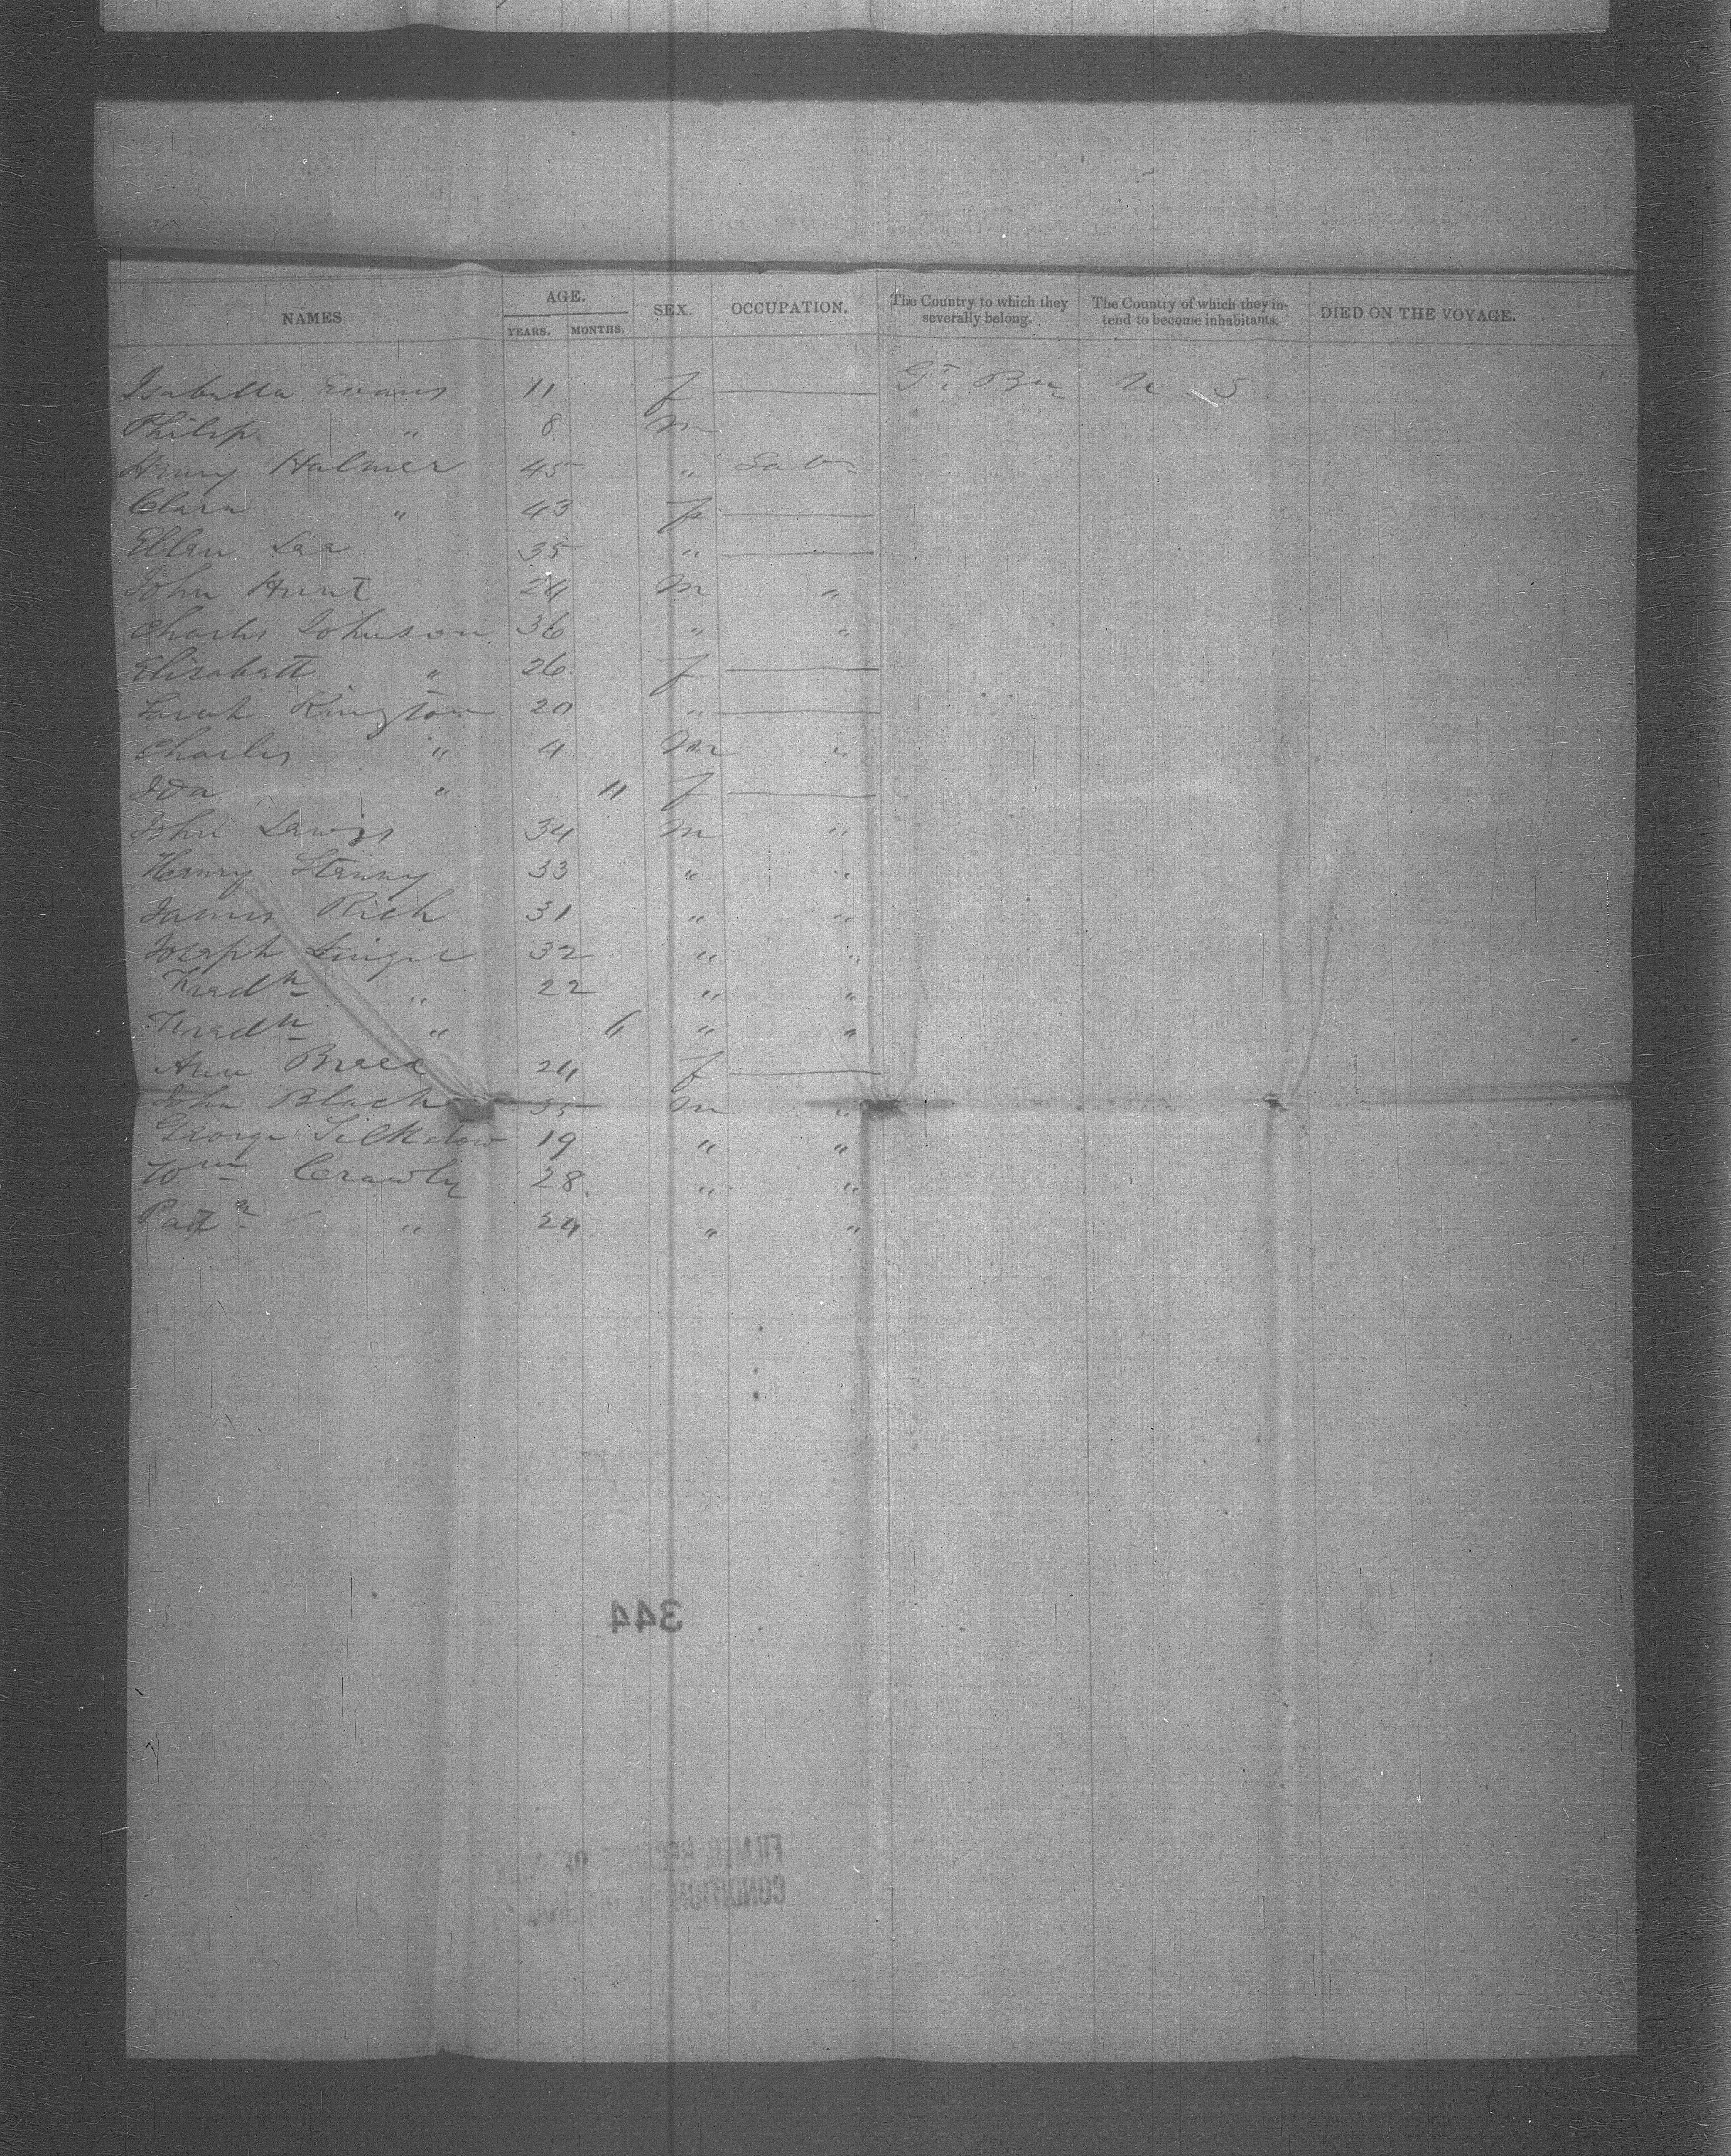 NAMES
AGE.
YEARS. MONTHS.
SEX.
OCCUPATION.
The Country to which they severally belong.
The Country of which they in-tend to become inhabitants.
DIED ON THE VOYAGE.
Isabella Evans 11 f — Gt. Brn U S
Philip " 8 m
Henry Halmer 45 " Labr
Clara " 43 f —
Ellen Lee 35 " —
John Hunt 24 m "
Charles Johnson 36 " "
Elizabett " 26 f —
Sarah Kington 20 " —
Charles " 4 m "
Ida " 11 f —
John Lewis 34 m "
Henry 33 " "
James Rich 31 " "
Joseph 32 " "
Fredk " 22 " "
Fredk " " "
Ann 24 f —
John Black 35 m "
George Silkstow 19 " "
Wm Crawly 28 " "
Patk " 24 " "
344
FILMED BECAUSE OF POOR
CONDITION OF ORIGINAL